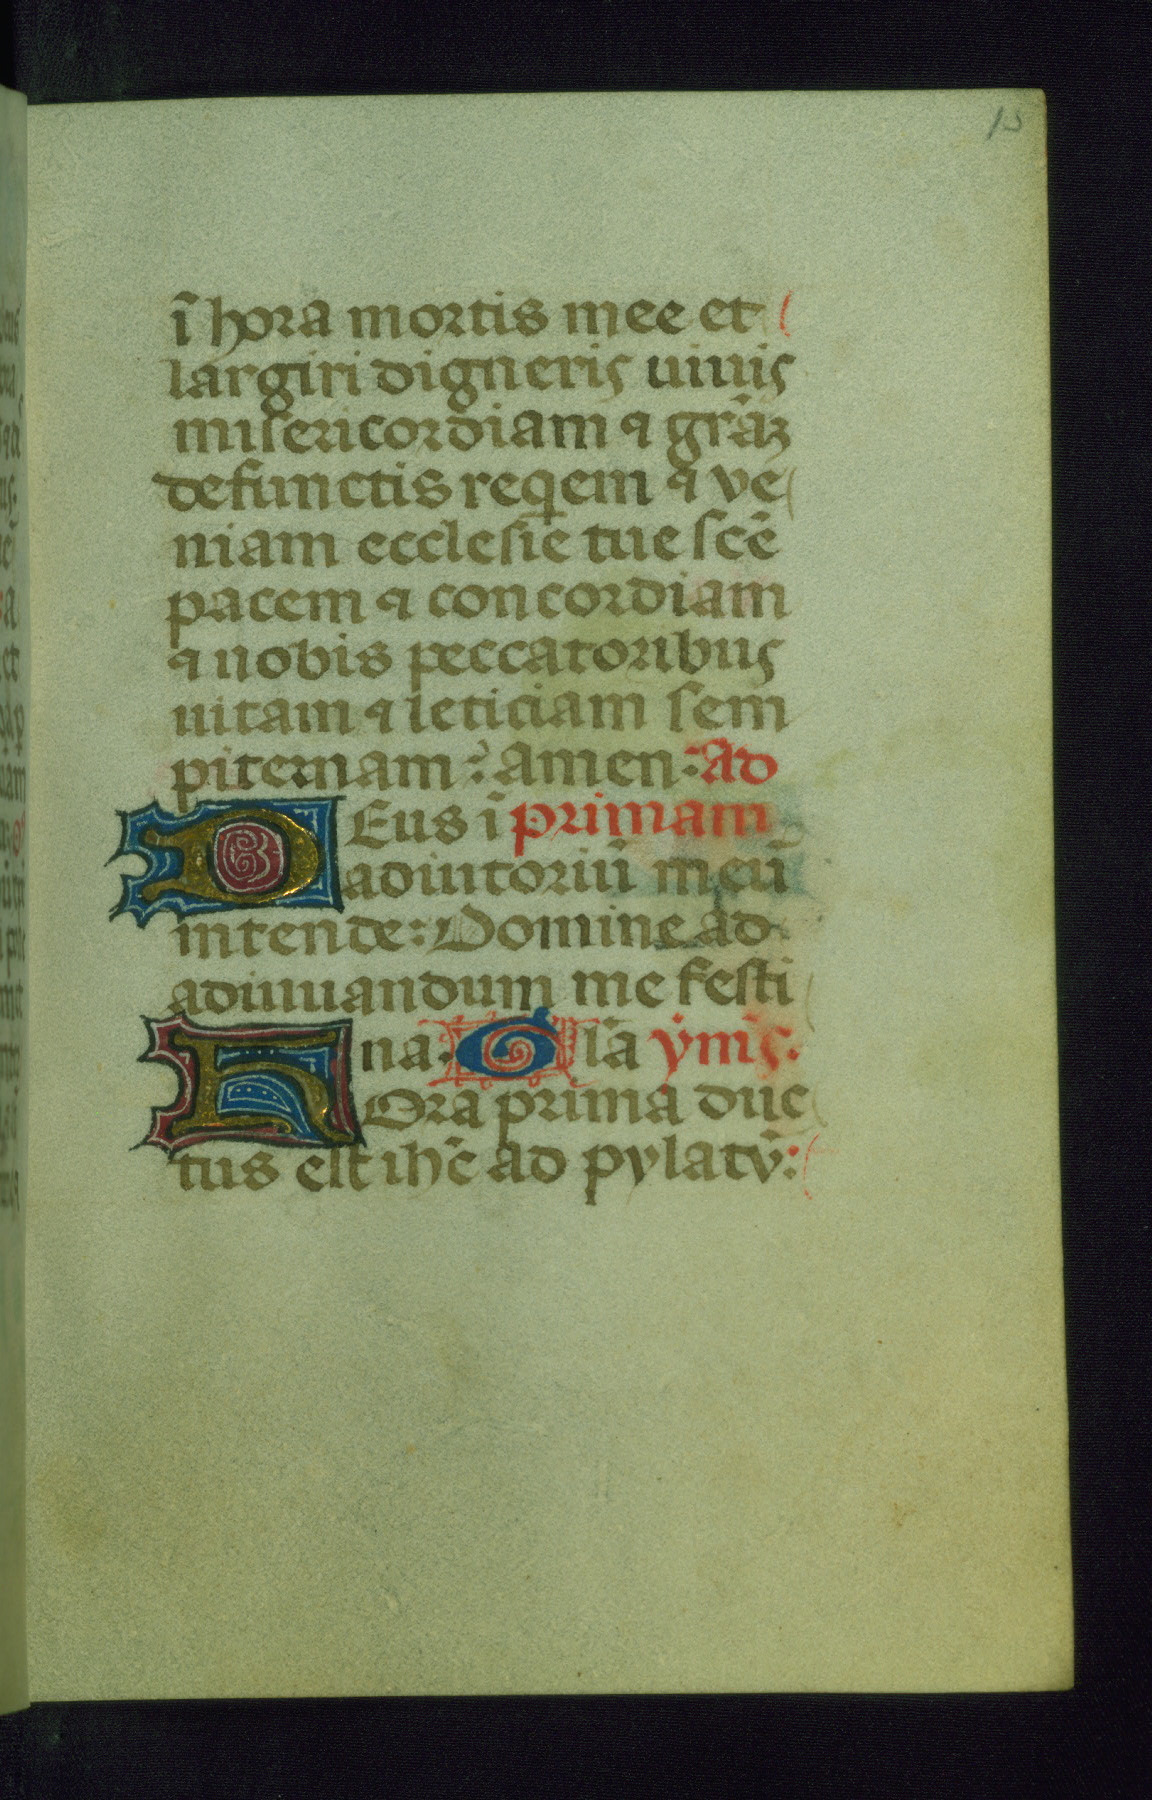 15
ī hora mortis mee et
largiri digneris uiuis
misericordiam ⁊ gr̄aꝫ
defunctis reqem ⁊ ve
niam ecclesie tue scē
pacem ⁊ concordiam
⁊ nobis peccatoribus
uitam ⁊ leticiam sem
piternam: amen: ad
DEus ī primam
adiutoriū meū
intende: Domine ad
adiuuandum me festi
na. Glā ym̄s.
hOra prima duc
tus est ihc̄ ad pylatū: